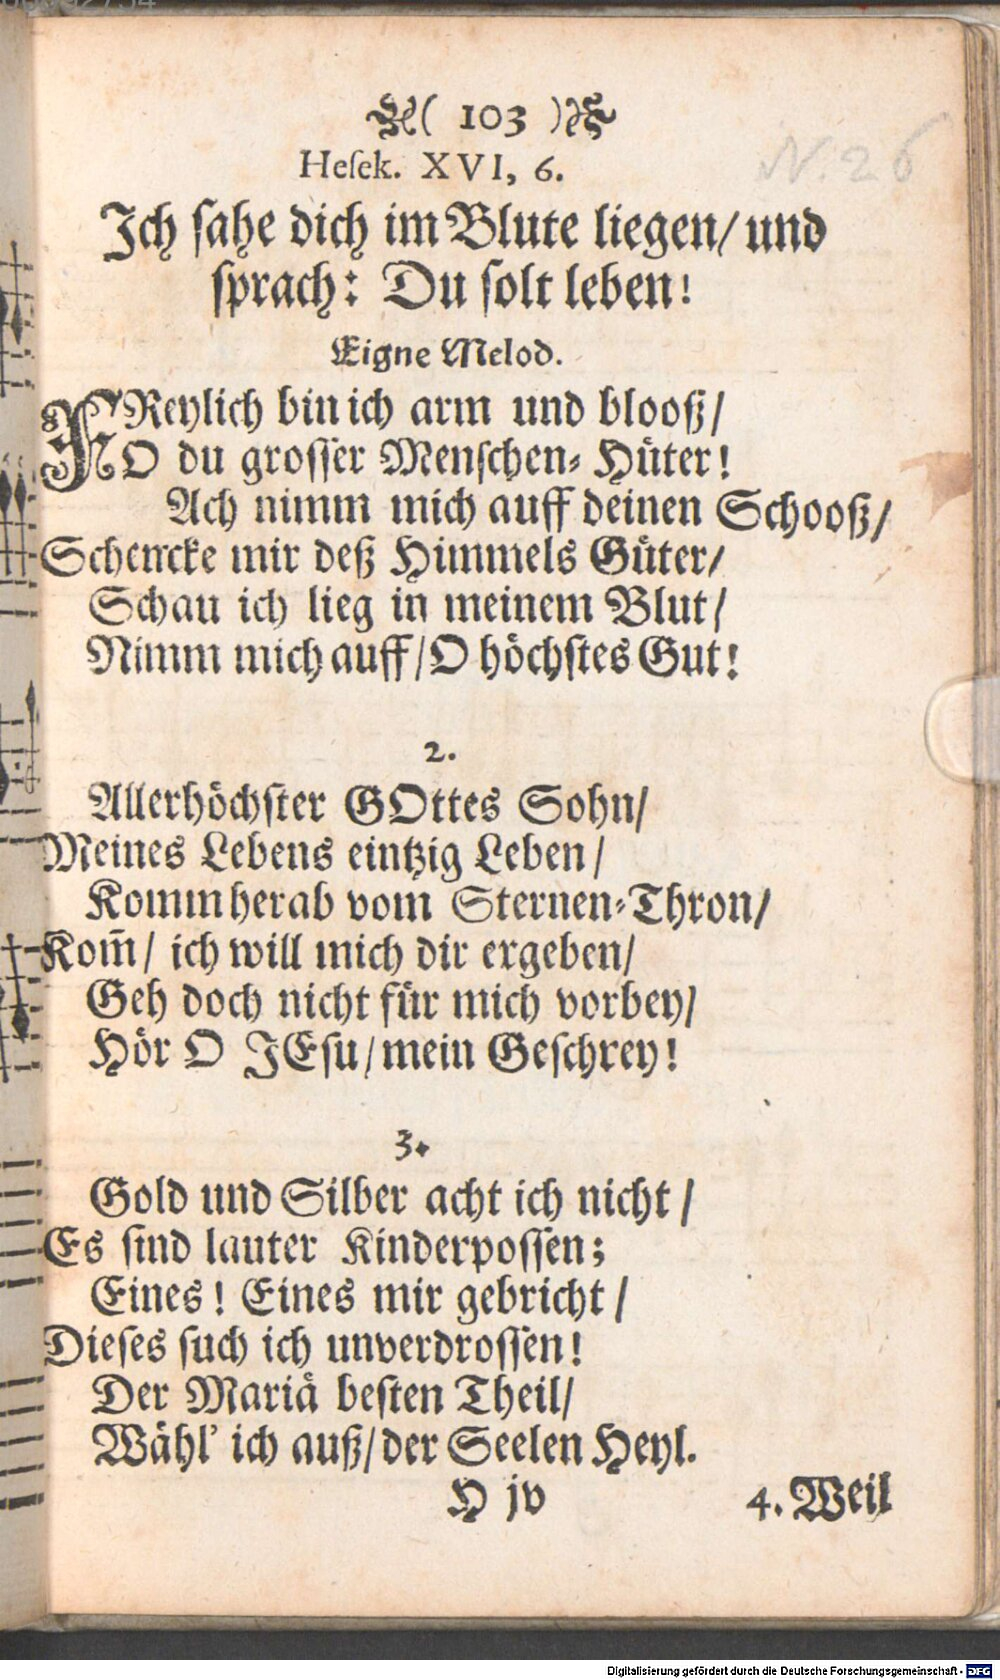 ( 103 )
N. 26
Heſek. XVI, 6.
Ich ſahe dich im Blute liegen/ und
ſprach: Du ſolt leben!
Eigne Melod.
FReylich bin ich arm und blooß/
O du groſſer Menſchen-Hüter!
Ach nimm mich auff deinen Schooß/
Schencke mir deß Himmels Güter/
Schau ich lieg in meinem Blut/
Nimm mich auff/ O höchſtes Gut!
2.
Allerhöchſter GOttes Sohn/
Meines Lebens eintzig Leben/
Komm herab vom Sternen-Thron/
Kom̃/ ich will mich dir ergeben/
Geh doch nicht für mich vorbey/
Hör O JEſu/ mein Geſchrey!
3.
Gold und Silber acht ich nicht/
Es ſind lauter Kinderpoſſen;
Eines! Eines mir gebricht/
Dieſes ſuch ich unverdroſſen!
Der Mariä beſten Theil/
Wähl' ich auß/ der Seelen Heyl.
H jv
4. Weil
Digitalisierung gefördert durch die Deutsche Forschungsgemeinschaft - DFG